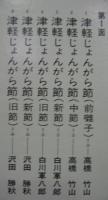 第1面
津軽じょんがら節(前囃子) 高橋 竹山
津軽じょんがら節(新節) 高橋 竹山
津軽じょんがら節(新節) 白川軍八郎
津軽じょんがら節(旧節) 白川軍八郎
津軽じょんがら節(新節) 沢田 勝秋
津軽じょんがら節(旧節) 沢田 勝秋